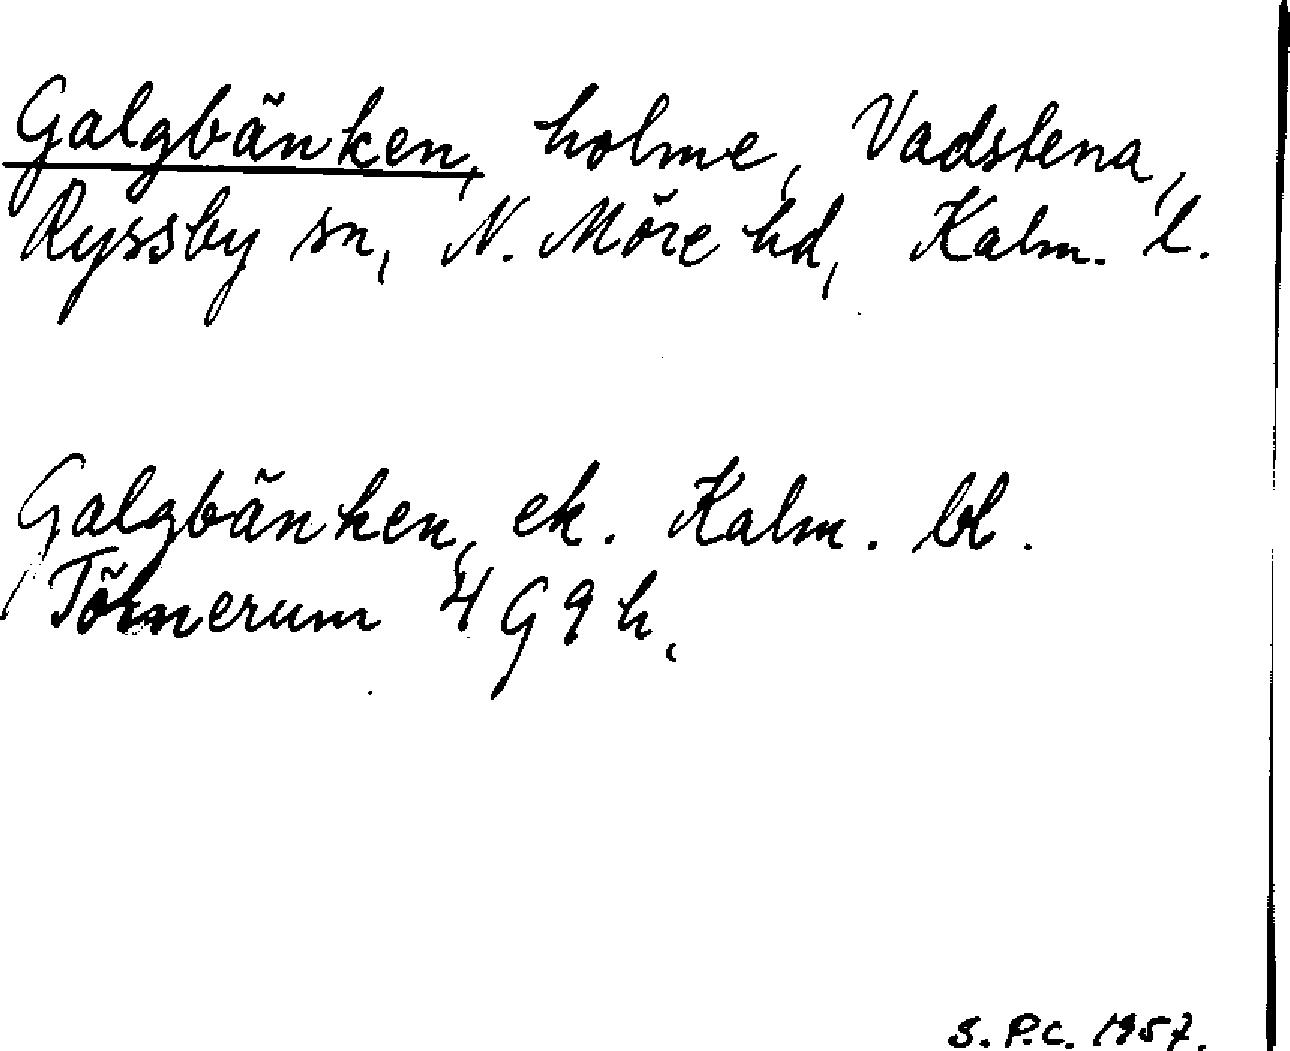 Galgbänken, holme, Vadstena,
Ryssby sn, N. Möre hd, Kalm. l.
Galgbänken, ek. Kalm. bl.
Törnerum 4 G 9 h,
S. P.C. 1957.